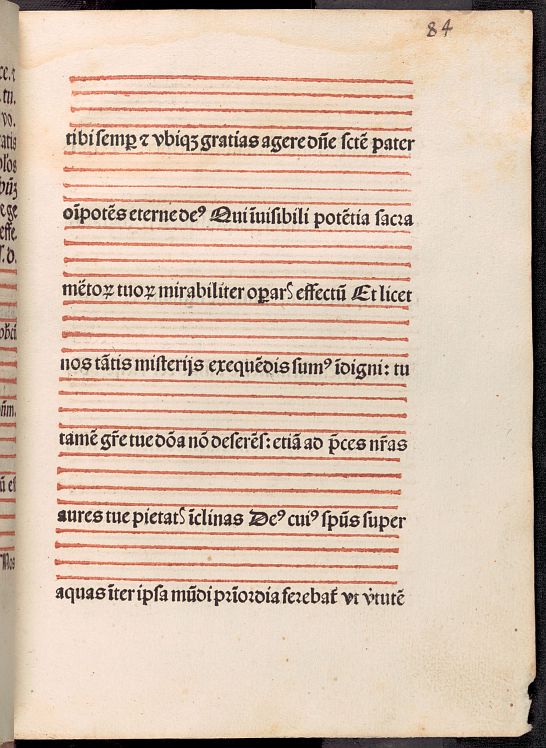 84
tibi semꝑ ⁊ vbiqꝫ gratias agere dn̄e sctē pater
oīpotēs eterne deꝰ Qui īuisibili potētia sacra
mētoꝝ tuoꝝ mirabiliter oꝑarꝭ effectū Et licet
nos tātis misterijs exequēdis sumꝰ īdigni: tu
tamē gr̄e tue dōa nō deserēs: etiā ad p̄ces nr̄as
aures tue pietatꝭ īclinas Deꝰ cuiꝰ sp̄us super
aquas īter ipsa mūdi prīordia ferebat̄ vt v̇tutē